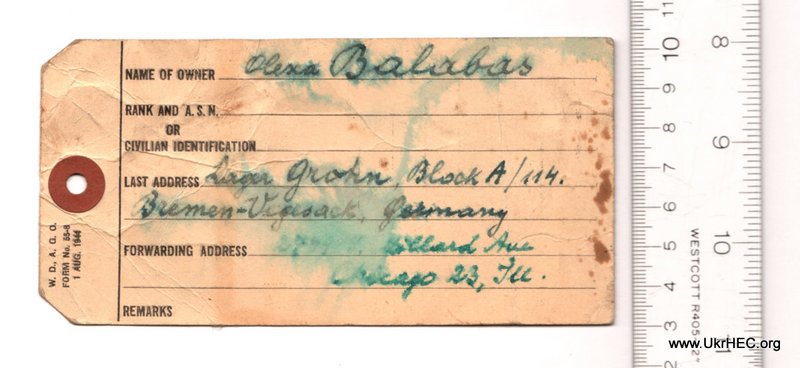 NAME OF OWNER Olexa Balabas
RANK AND A. S. N.
OR
CIVILIAN IDENTIFICATION
LAST ADDRESS Lager Grohn, Block A/114.
Bremen-Vegesack, Germany
FORWARDING ADDRESS Ave
Chicago 23, Ill.
REMARKS
W. D., A. G. O.
FORM No. 55-8
1 AUG. 1944
11 10 9 8 7 6 5 4 3 2
8 9 10 11
WESTCOTT R405-12"
www.UkrHEC.org